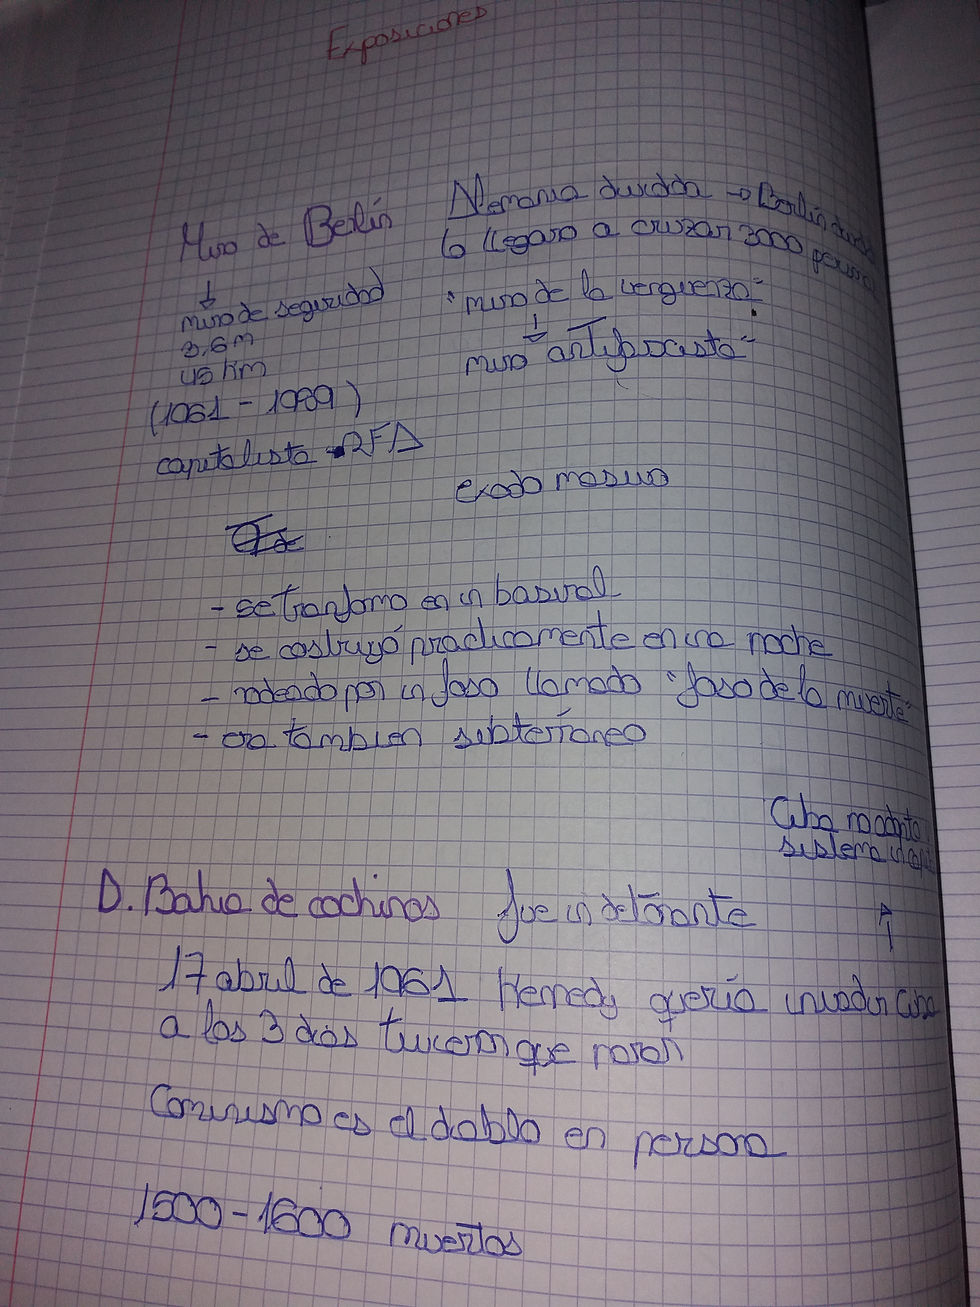 Exposiciones
Muro de Berlín
↓
muro de seguridad
3,6m
45 km
(1961 - 1989)
capitalista RFA
Alemania dividida → Berlín
↳ llegaro a cruzan 3000
"muro de la verguenza"
↓
muro antifascista"
exodo masivo
- se tranformo en un basural
- se costruyó practicamente en una noche
- rodeado por un foso llamado "foso de la muerte"
- era tambien subterraneo
Cuba
sistema
↑
D. Bahia de cochinos fue un detonante
17 abril de 1961 Kennedy quería invadir Cuba
a los 3 dias tuvieron que parar
Comunismo es el diablo en persona
1500 - 1600 muertos